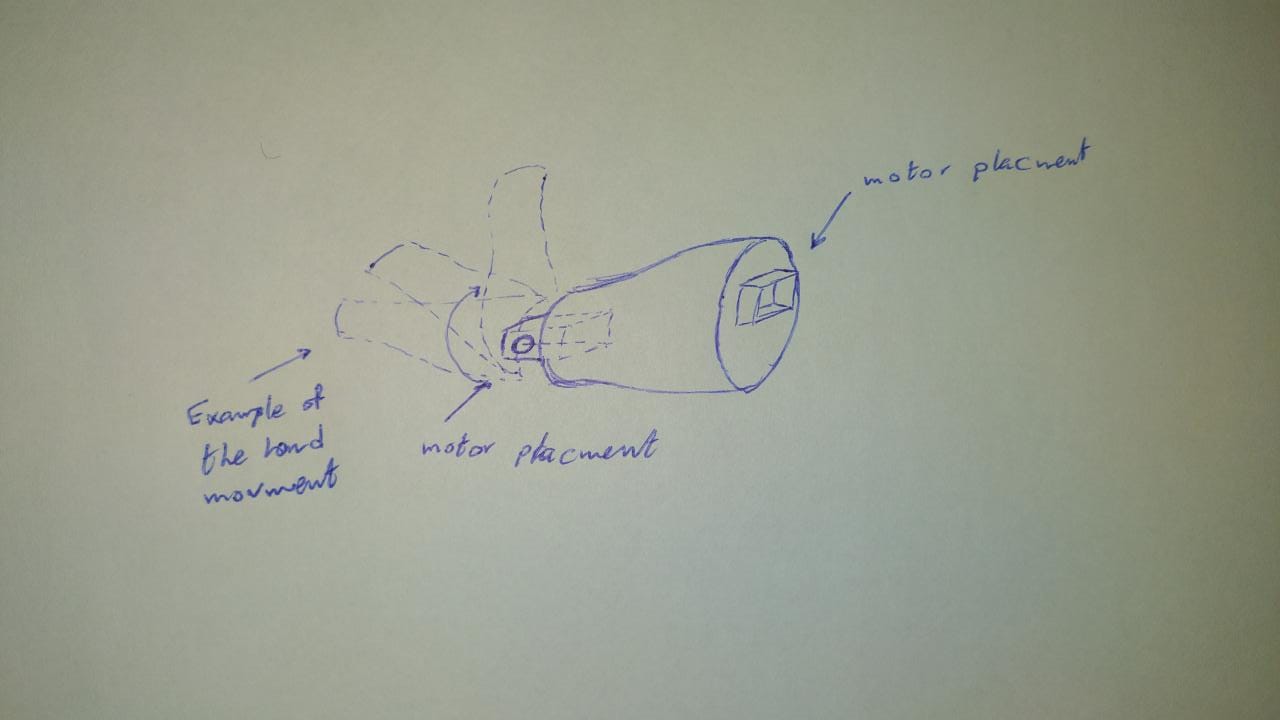 motor placment
Example of
the hand
movment
motor placment